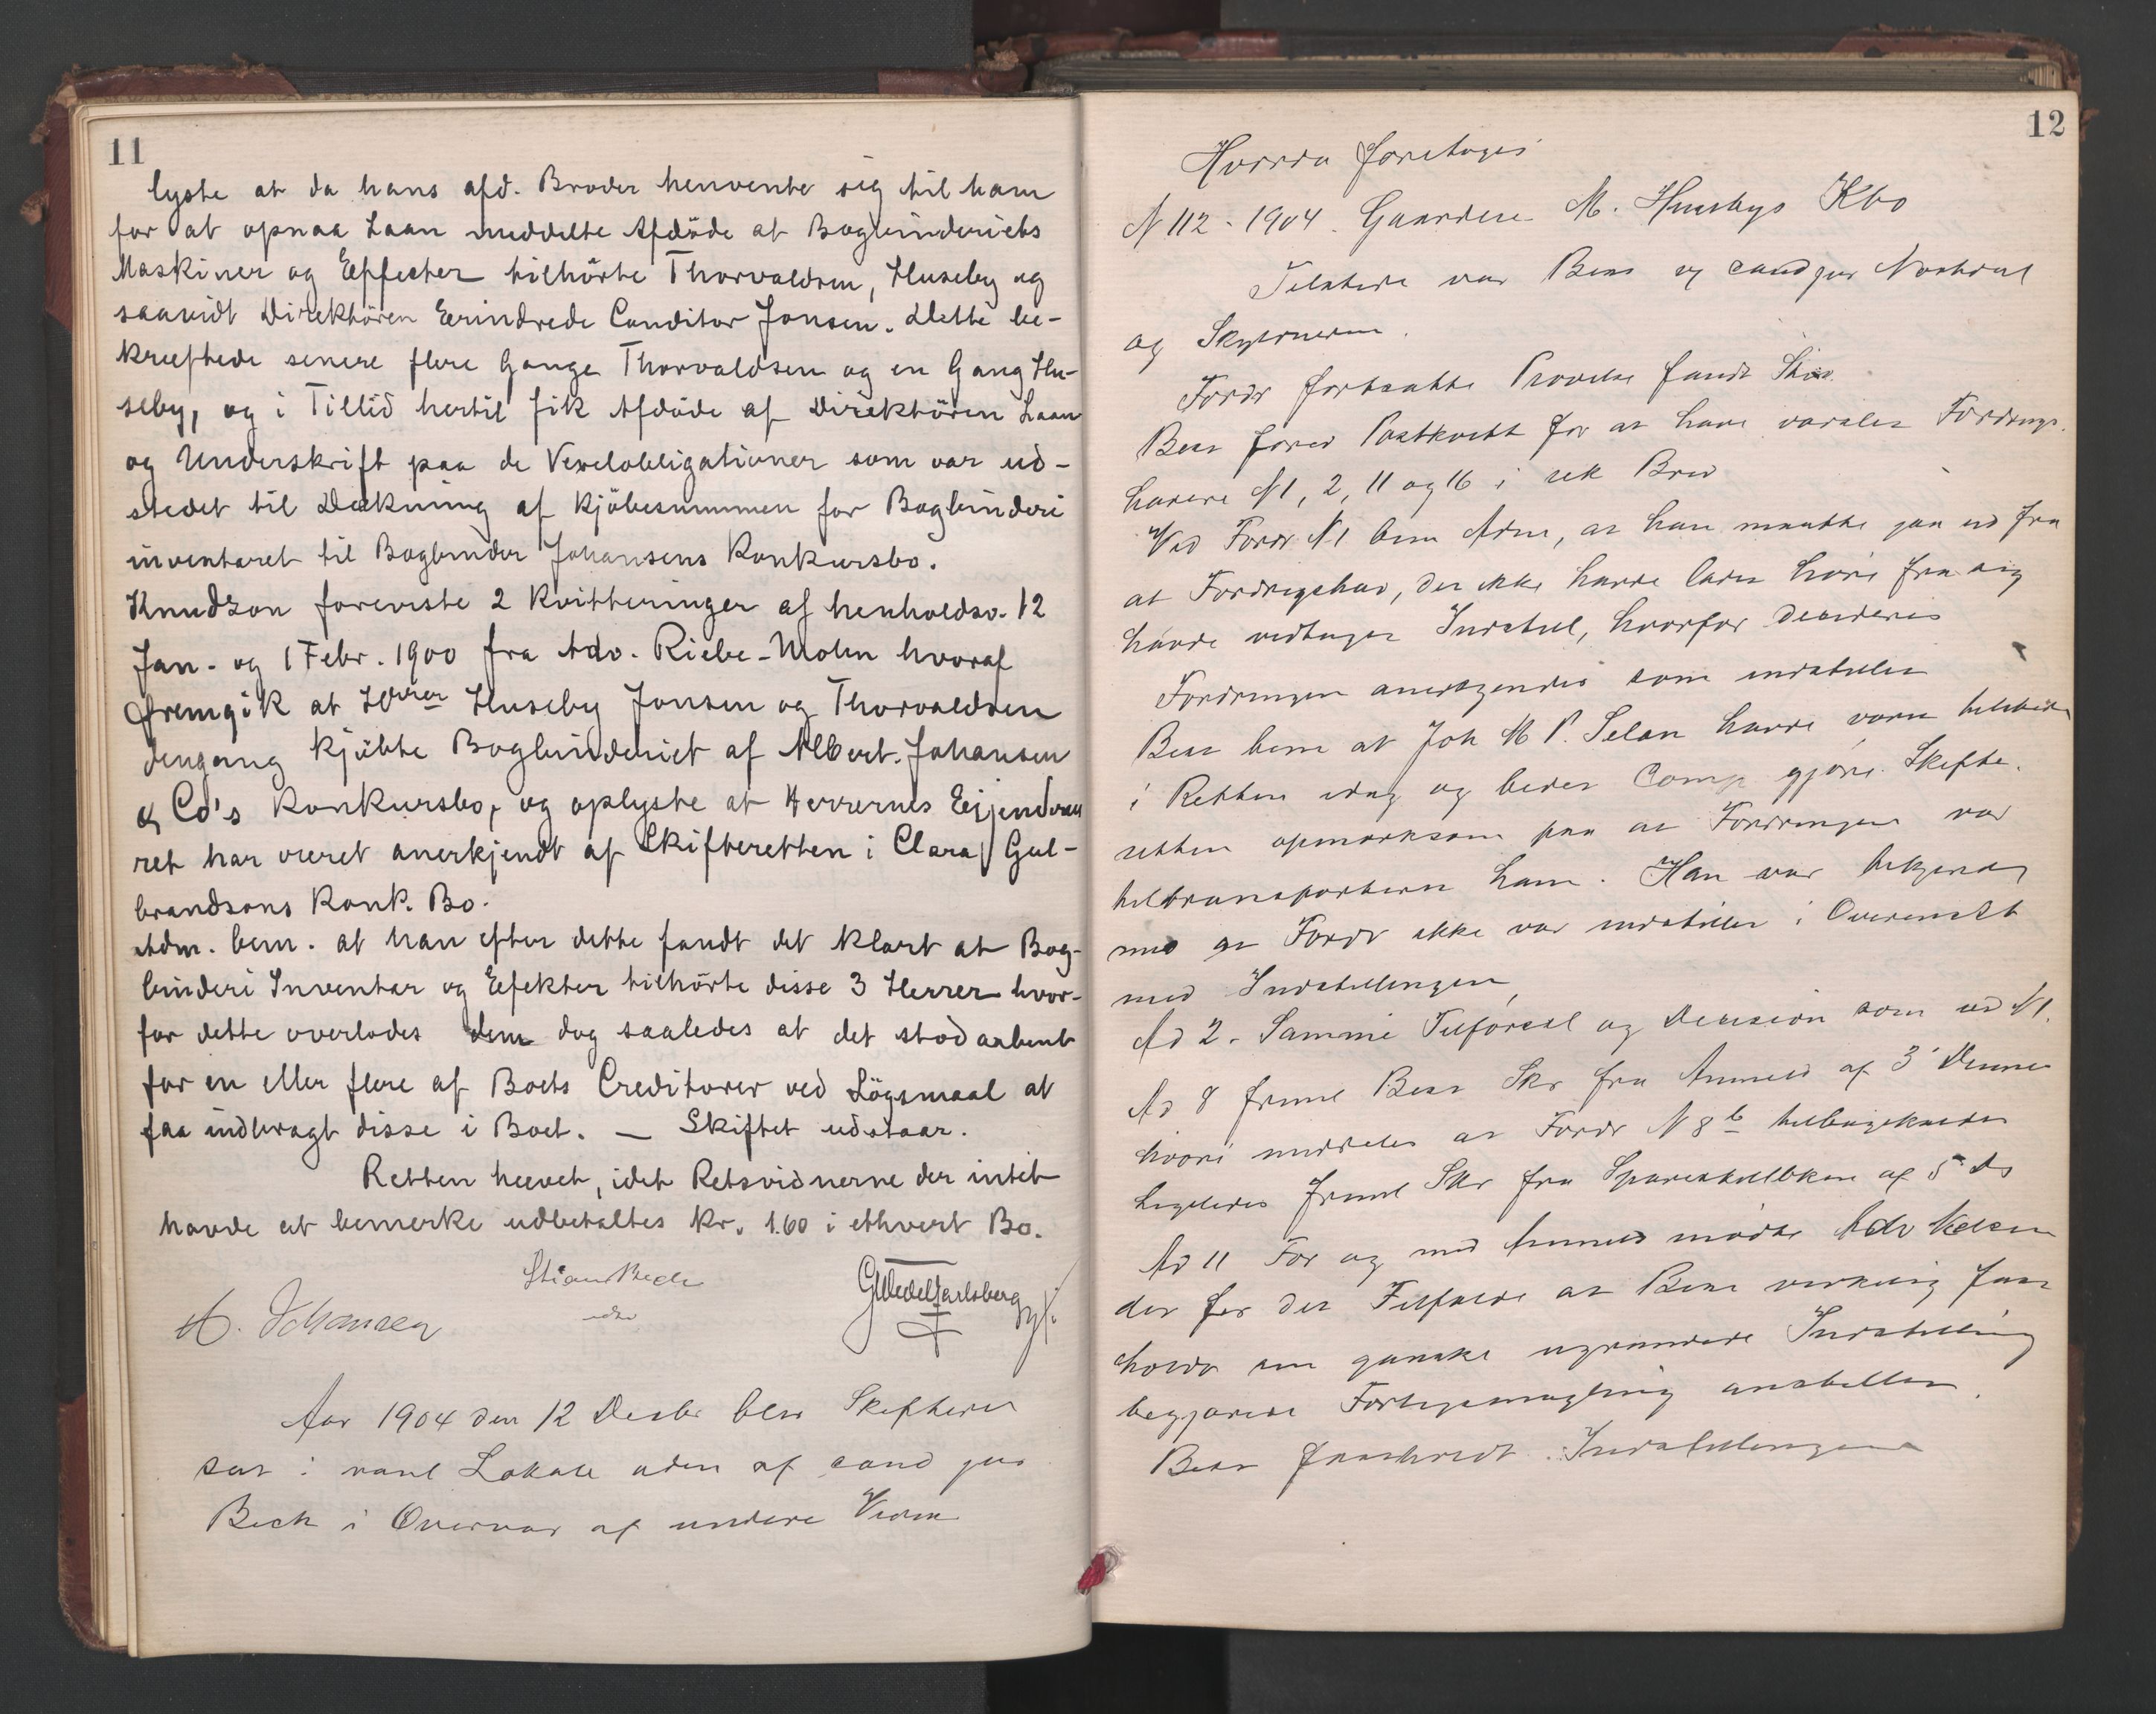 11
lyste at da hans afd. Broder henvente sig til ham
for at opnaa Laan meddelte Afdøde at Bogbinderiets
Maskiner og Effecter tilhørte Thorvaldsen, Huseby og
saavidt Direktøren Erindrede Conditor Jonsen. Dette be-
kræftede senere flere Gange Thorvaldsen og en Gang Hu-
seby, og i Tillid hertil fik Afdøde af Direktøren Laan
og Underskrift paa de Vexelobligationer som var ud-
stedet til Dækning af Kjøbesummen for Bogbinderi
inventaret til Bogbinder Johansens Konkursbo.
Knudzon foreviste 2 Kvitteringer af henholdsv. 12
Jan. og 1 Febr. 1900 fra Adv. Riebe-Mohn hvoraf
fremgik at Herrer Huseby Jonsen og Thorvaldsen
dengang kjøbte Bogbinderiet af Albert Johansen
& Co's Konkursbo, og oplyste at Herrernes Eiendoms
ret har været anerkjendt af Skifteretten i Clara Gul-
brandsons Konk. Bo.
Adm. bem. at han efter dette fandt det klart at Bog-
binderi Inventar og Efekter tilhørte disse 3 Herrer hvor-
for dette overlodes dem dog saaledes at det stod aabent
for en eller flere af Boets Creditorer ved Søgsmaal at
faa indbragt disse i Boet. — Skiftet udstaar.
Retten hævet, idet Retsvidnerne der intet
havde at bemerke udbetaltes Kr. 1.60 i ethvert Bo.
Stian Bech
A. Johansen
GWedelJarlsberg
Aar 1904 den 12 Desbr blev Skifteret
sat i vanl Lokale adm af cand jur
Beck i Overvær af undere Vidne
12
Hvorda foretoges
N 112 - 1904. Gaardeier M. Husebys Kbo
Tilstede var Best og cand jur
og Skyldneren.
Fordr fortsatte Prøvelse fandt Sted.
Best fored Postkvitt for at have varslet Fordrings-
havere N 1, 2, 11 og 16 i rek Brev
Ved Fordr N 1 bem Adm, at han maatte gaa ud fra
at Fordringshav, der ikke havde ladet høre fra sig
havde vedtaget Indstil, hvorfor decideres
Fordringen anerkjendes som indstillet
Best bem at Joh M P. Selan havde været tilstede
i Retten idag og bedet Comp gjøre Skifte-
retten opmærksom paa at Fordringen var
tiltransporteret ham. Han var bekjendt
med at Fordr ikke var indstillet i Overensst
med Indstillingen
Ad 2. Samme Tilførsel og Decision som ved N 1.
Ad 8 freml Best Skr fra Anmeld af 3 Dennes
hvori meddeles at Fordr N 8 b tilbagekaldes
Ligeledes freml Skr fra Spareskillbken af 5 ds
Ad 11 For og med Anmeld mødte Adv
der for det Tilfælde at Best virkelig fast
holdt sin ganske ugrundede Indstilling
begjærede Forligsmægling anstillet.
Best fastholdt Indstillingen